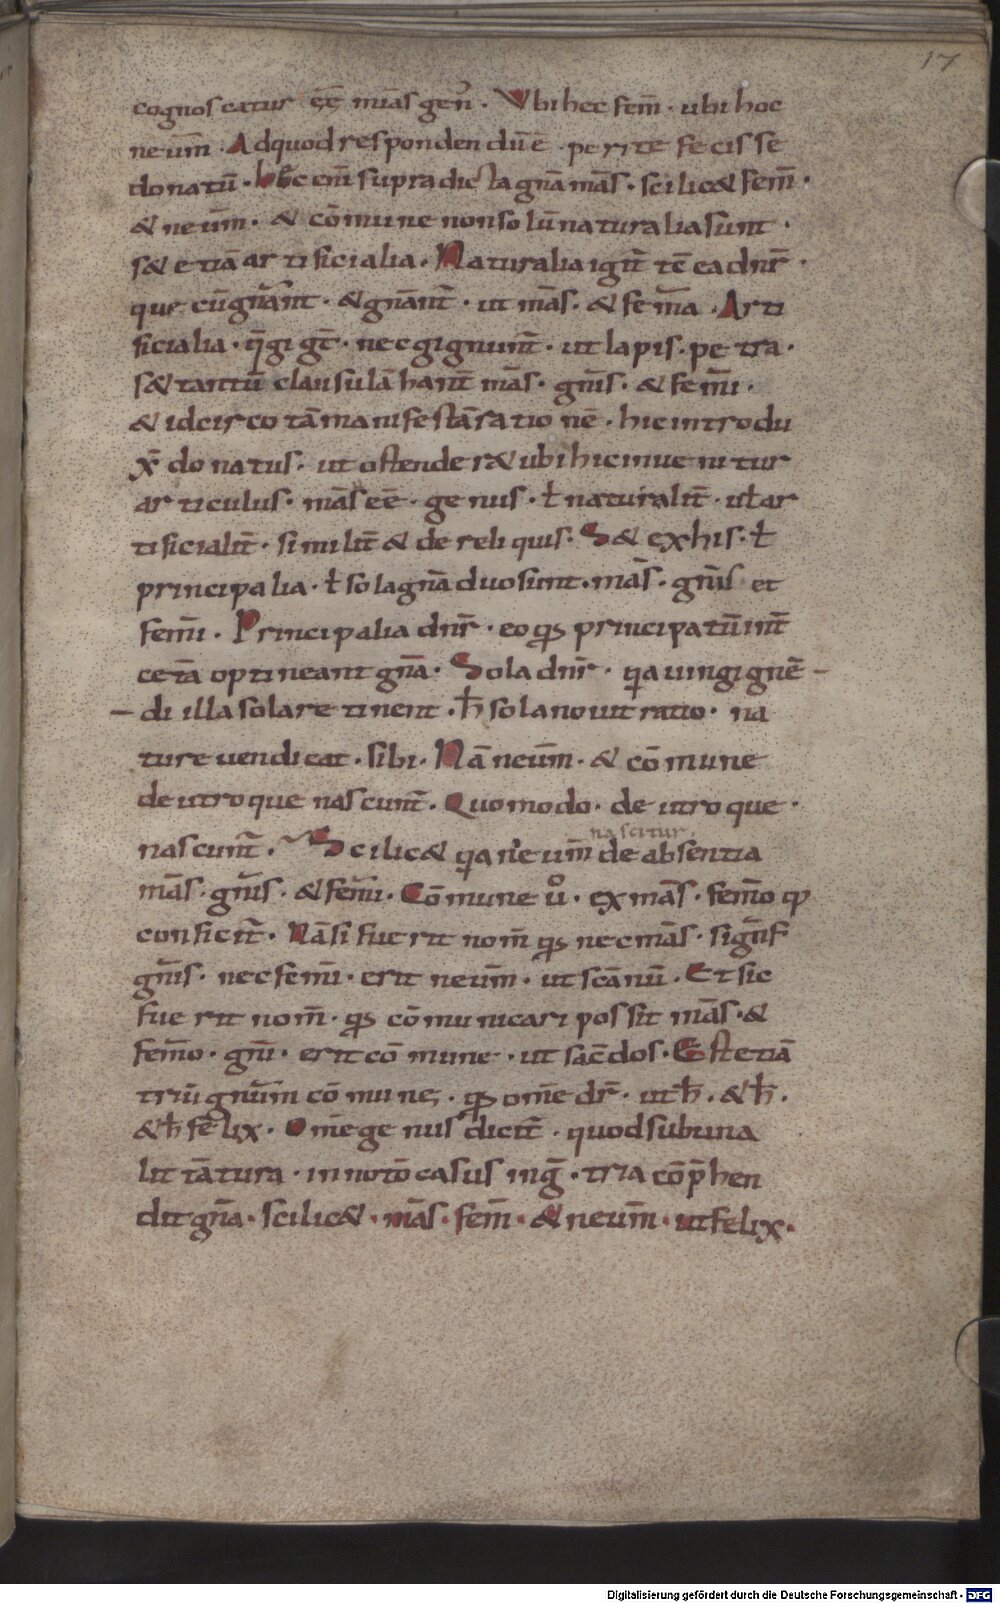 17
cognoscatur eē mãs gen̄. Vbi hec fem̄. ubi hoc
neūm. Ad quod respondendū ē. perite fecisse
donatū. Hec em̄ supradicta gn̄a mās. scilic& fem̄.
& neūm. & cōmune non solū naturalia sunt.
s& etiā artificialia. Naturalia igit̄ tc̄ ea dn̄r.
que cū gn̄ant. & gn̄ant̄. ut mās. & fem̄a. Arti
ficialia. q̄ gigt̄. nec gignunt̄. ut lapis. petra.
s& tantū clausulā hant̄ mās. gn̄is. & fem̄i.
& idcirco tā manifestā rationē. hic introdu
x̄ donatus. ut ostender& ubi hic inuenitur
articulus. mās eē. genus. ł naturalit̄. uł ar
tificialit̄. similit̄ & de reliquis. S& ex his. ł
principalia. ł sola gn̄a duo sunt. mās. gn̄is et
fem̄i. Principalia dn̄r. eo qđ principatū int̄
cetā optineant gn̄a. Sola dn̄r. qa uingignē
di illa sola retinent. ħ sola nouit ratio. na
ture uendicat. sibi. Nā neūm. & cōmune
de utroque nascunt̄. Quomodo. de utroque.
nascunt̄. Scilic& qa neūm de absentia
nascitur.
mās. gn̄is. & fem̄i. Cōmune ů. ex mās. fem̄o qp
conficit̄. Nā si fuerit nom̄ qđ nec mās. signif̄
gn̄is. nec fem̄i. erit neūm. ut scānū. Et sic
fuerit nom̄. qđ cōmunicari possit mās. &
fem̄o. gn̄i. erit cōmune. ut sac̄dos. Est etiā
triū gn̄um cōmune. qđ om̄e dr̄. ut ħ. & ħ.
& ħ felix. Om̄e genus dicit̄. quod sub una
littātura. in notō casus inḡ. tria cōp̄hen
dit gn̄a. scilic&. mās. fem̄. & neūm. ut felix.
Digitalisierung gefördert durch die Deutsche Forschungsgemeinschaft - DFG